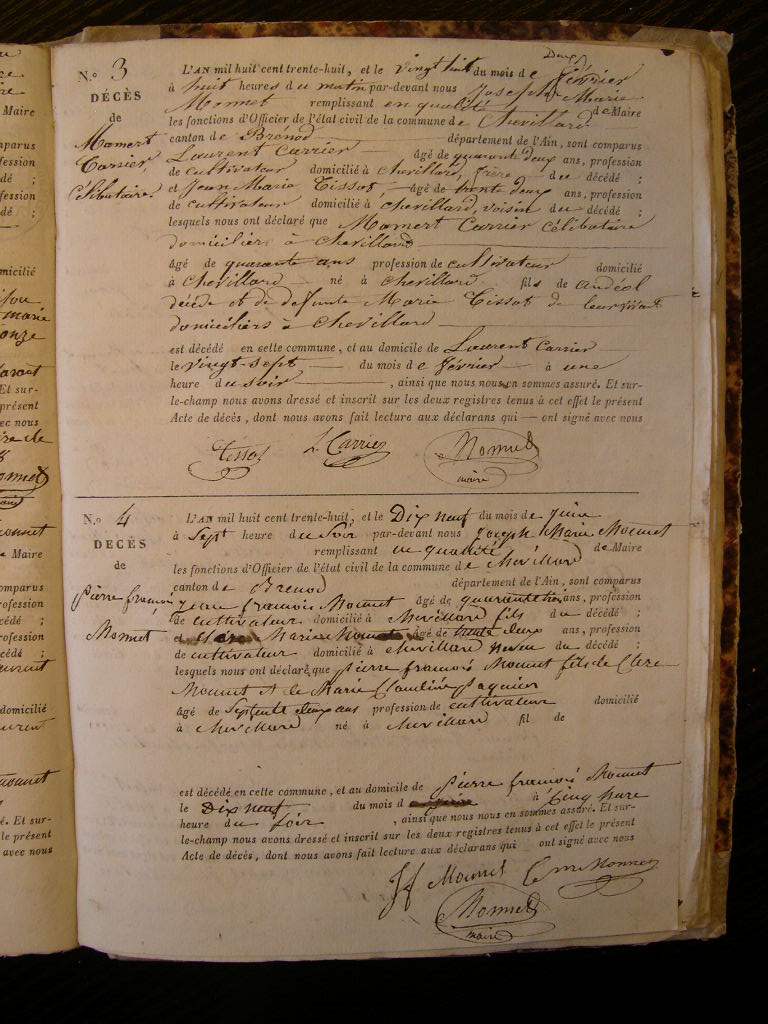 N.o 3
DÉCÈS
de
Mamert
Carrier,
Célibataire.
L'AN mil huit cent trente-huit, et le vingt huit du mois de février
à huit heures du matin par-devant nous Joseph Marie
Monnet remplissant en qualité de Maire
les fonctions d'Officier de l'état civil de la commune de Chevillard.
canton de Brénod département de l'Ain, sont comparus
Laurent Carrier âgé de quarante deux ans, profession
de cultivateur domicilié à chevillard, frère du décédé ;
et Jean Marie Tissot, âgé de trente deux ans, profession
de cultivateur domicilié à chevillard, voisin du décédé ;
lesquels nous ont déclaré que Mamert Carrier célibataire
domiciliers à chevillard
âgé de quarante ans profession de cultivateur domicilié
à chevillard né à chevillard fils de andéol
décédé et de defunte Marie Tissot de leur vivant
domiciliers à chevillard
est décédé en cette commune, et au domicile de Laurent Carrier
le vingt sept du mois de février à une
heure du soir , ainsi que nous nous en sommes assuré. Et sur-
le-champ nous avons dressé et inscrit sur les deux registres tenus à cet effet le présent
Acte de décès, dont nous avons fait lecture aux déclarans qui ont signé avec nous
Tissot L. Carrier Monnet
maire
N.o 4
DÉCÈS
de
pierre francois
Monnet
L'AN mil huit cent trente-huit, et le Dix neuf du mois de juin
à Sept heure du soir par-devant nous Joseph Marie Monnet
remplissant en qualité de Maire
les fonctions d'Officier de l'état civil de la commune de chevillard
canton de Brenod département de l'Ain, sont comparus
francois Monnet âgé de ans, profession
de cultivateur domicilié à chevillard fils du décédé ;
et Marie Monnet âgé de trente deux ans, profession
de cultivateur domicilié à chevillard neveu du décédé ;
lesquels nous ont déclaré que pierre francois Monnet fils de Clere
Monnet et de Marie Claudine paquier
âgé de Septente deux ans profession de cultivateur domicilié
à chevillard né à chevillard fil de
est décédé en cette commune, et au domicile de pierre francois Monnet
le Dix neuf du mois d à Cinq hure
heure du soir , ainsi que nous nous en sommes assuré. Et sur-
le-champ nous avons dressé et inscrit sur les deux registres tenus à cet effet le présent
Acte de décès, dont nous avons fait lecture aux déclarans qui ont signé avec nous
Jf Monnet Cm Monnet
Monnet
maire